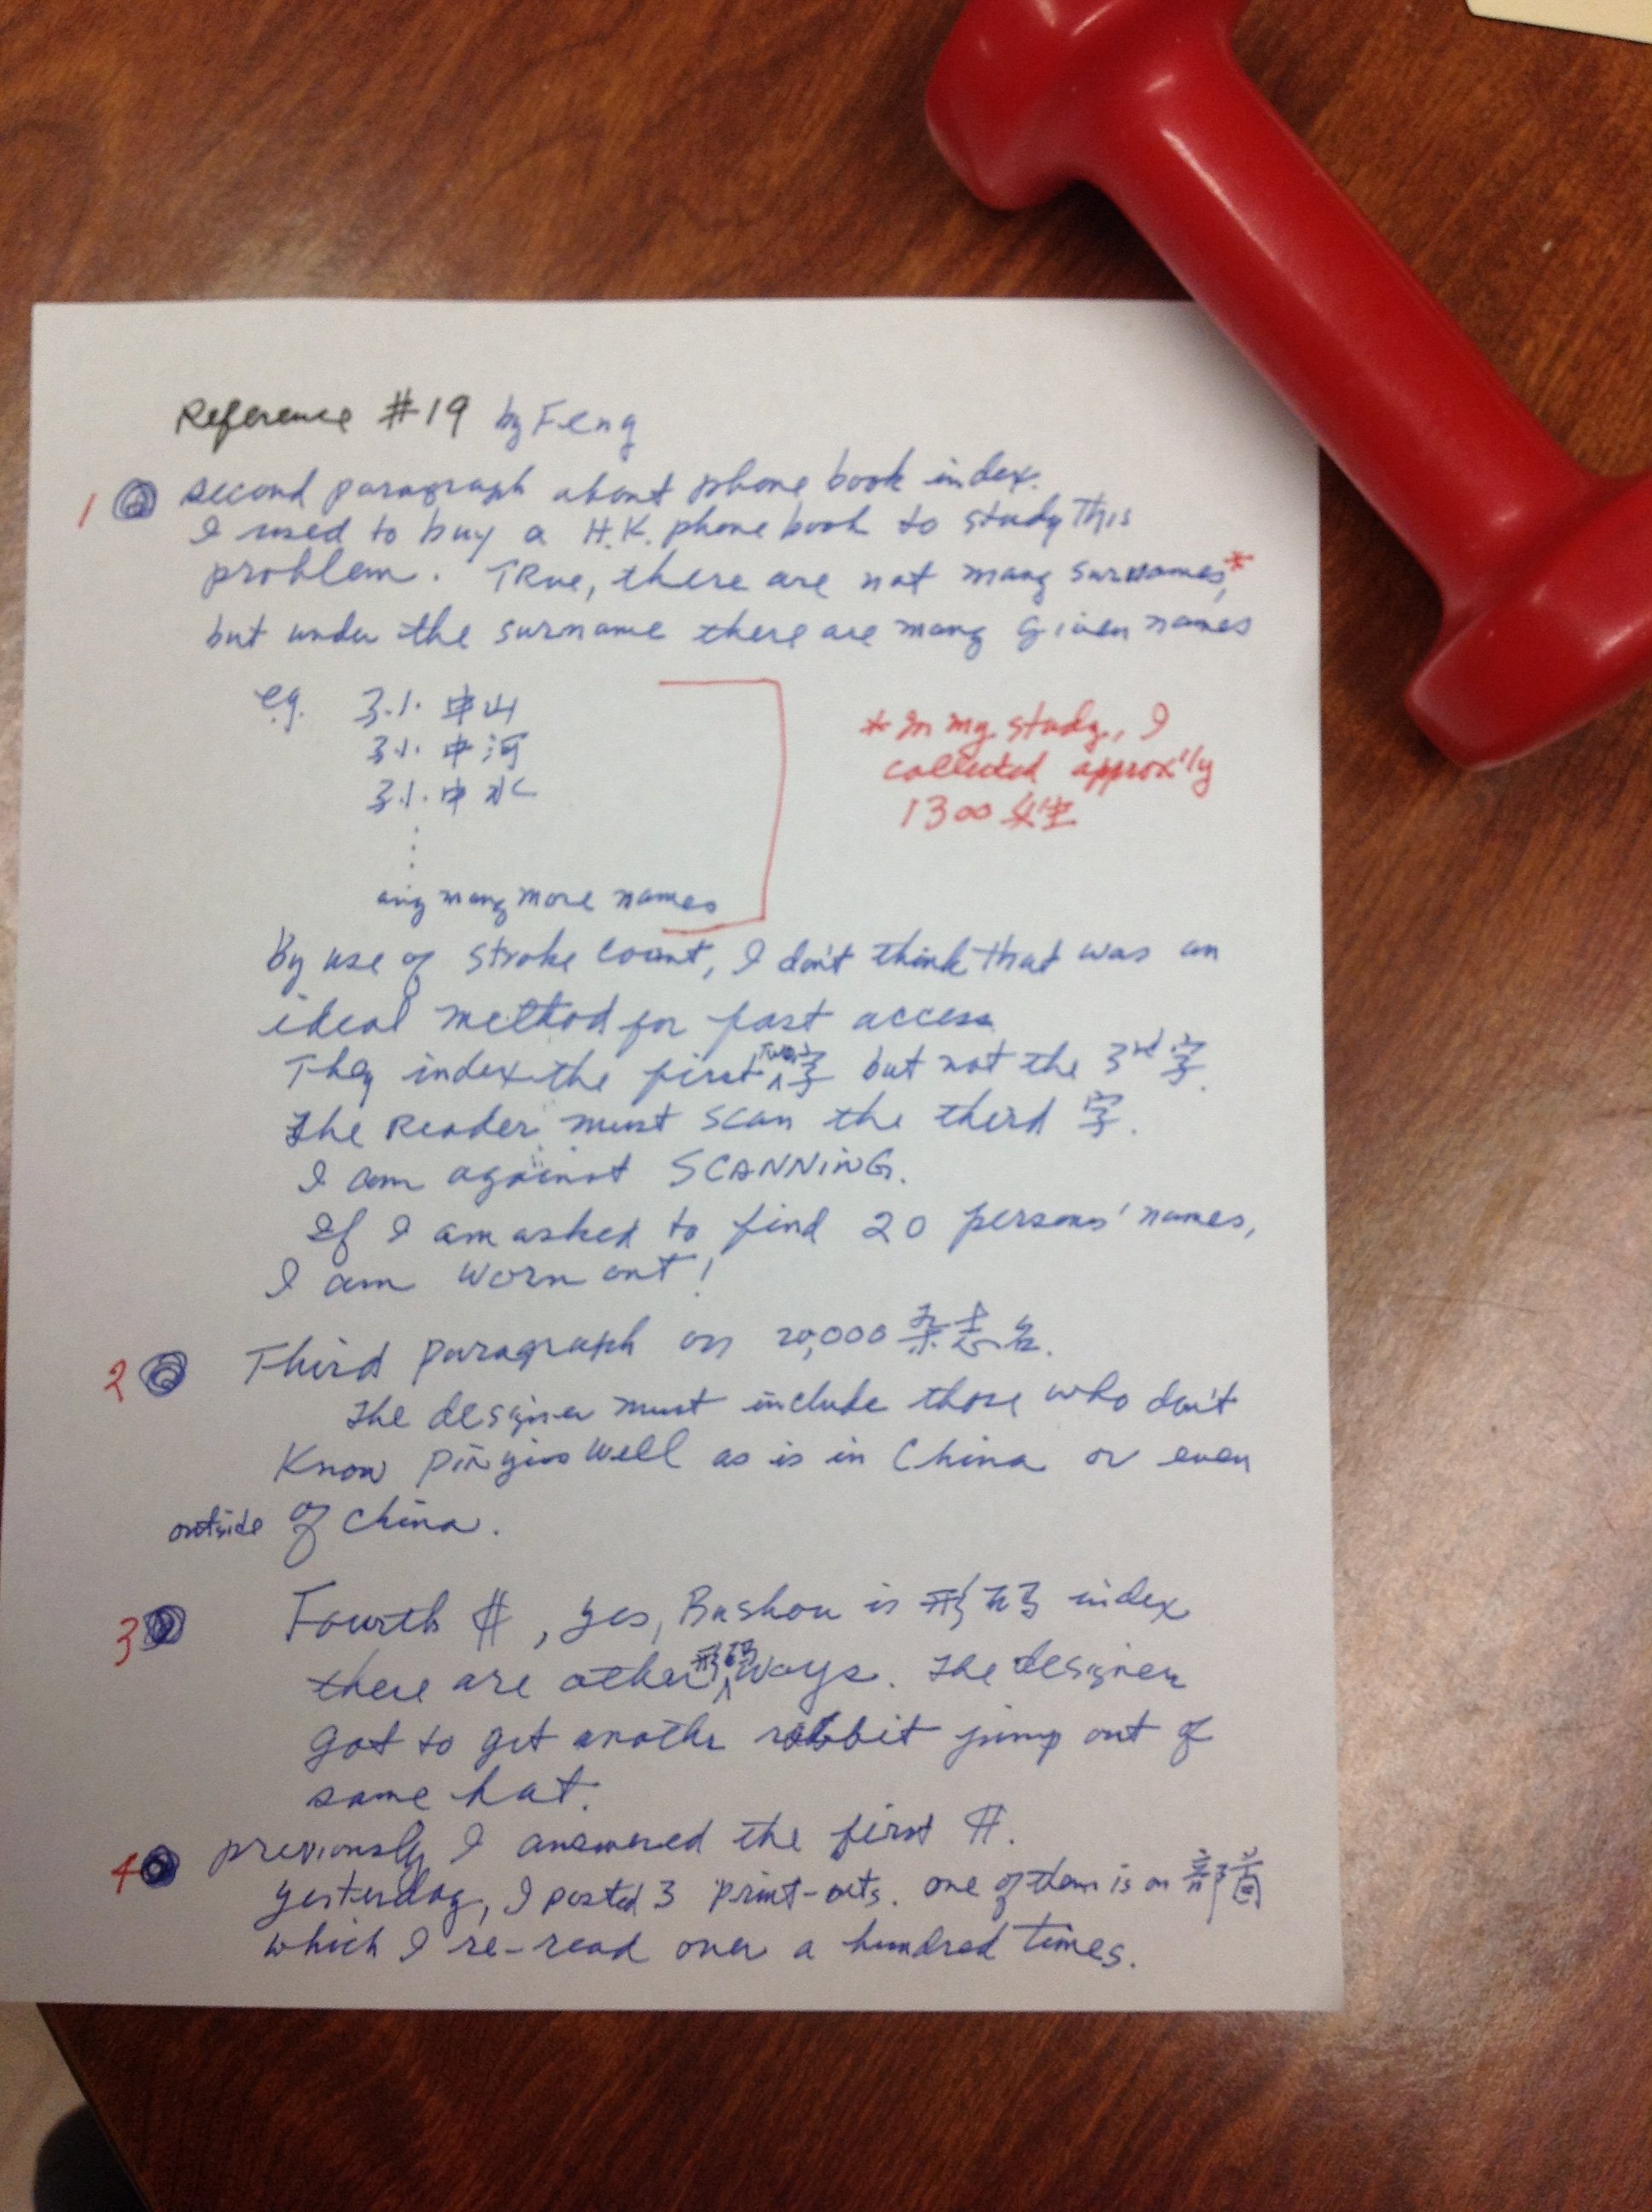 Reference #19 by Feng
1 second paragraph about phone book index.
I used to buy a H.K. phone book to study This
problem. TRue, there are not many surnames,*
but under the surname there are many given names
e.g. 孙 中山
孙 中河
孙 中水
many more names
* In my study, I
collected approx'ly
1300 姓
By use of stroke count, I don't think that was an
ideal method for fast access
They index the first two 字 but not the 3rd 字.
The Reader must scan the third 字.
I am against SCANNING.
If I am asked to find 20 persons' names,
I am worn out!
2 Third paragraph on 20,000 杂志名.
The designer must include those who don't
Know pinyin well as is in China or even
outside of China.
3 Fourth #, yes, Bushou is 形码 index
there are other 形码 ways. The designer
got to get another rabbit jump out of
same hat.
4 previously I answered the first #.
yesterday, I posted 3 print-outs. one of them is on 部首
which I re-read over a hundred times.